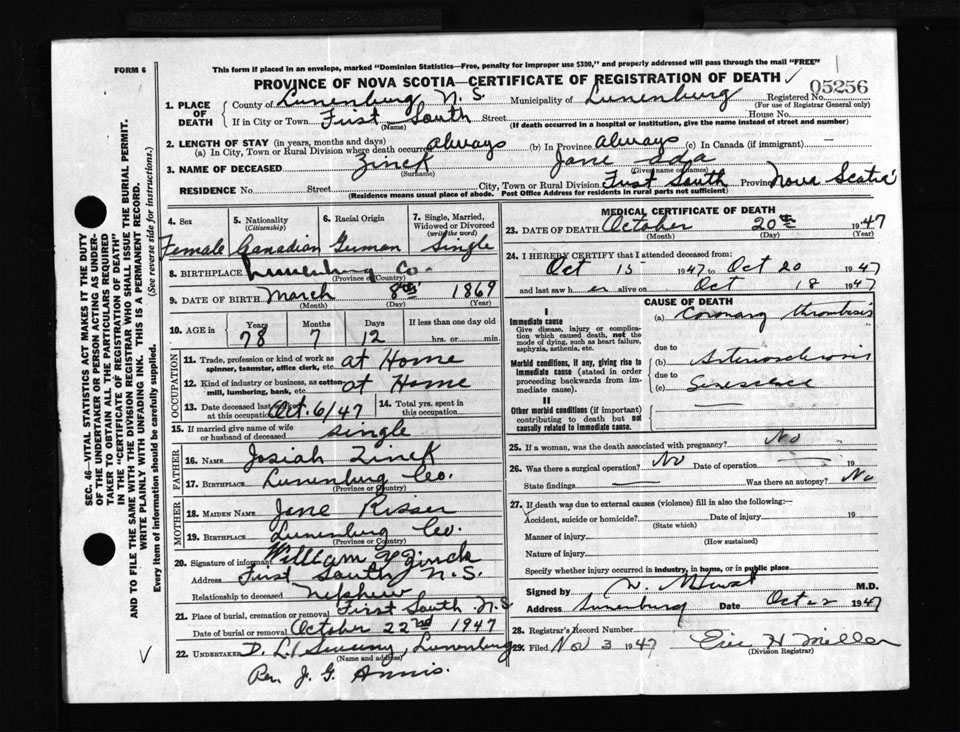 FORM 6
This form if placed in an envelope, marked "Dominion Statistics—Free, penalty for improper use $300," and properly addressed will pass through the mail "FREE"
PROVINCE OF NOVA SCOTIA—CERTIFICATE OF REGISTRATION OF DEATH
05256
1. PLACE OF DEATH
County of Lunenburg N. S. Municipality of Lunenburg Registered No.
(For use of Registrar General only)
If in City or Town First South Street House No.
(Name) (If death occurred in a hospital or institution, give the name instead of street and number)
2. LENGTH OF STAY (in years, months and days)
(a) In City, Town or Rural Division where death occurred always (b) In Province always (c) In Canada (if immigrant) —
3. NAME OF DECEASED Zinck Jane Ida
(Surname) (Given name or names)
RESIDENCE No. Street City, Town or Rural Division First South Province Nova Scotia
(Residence means usual place of abode. Post Office Address for residents in rural parts not sufficient)
4. Sex Female
5. Nationality (Citizenship) Canadian
6. Racial Origin German
7. Single, Married, Widowed or Divorced (write the word) Single
8. BIRTHPLACE Lunenburg Co.
(Province or Country)
9. DATE OF BIRTH March 8th 1869
(Month) (Day) (Year)
10. AGE in Years Months Days If less than one day old
78 7 12 hrs. or min.
OCCUPATION
11. Trade, profession or kind of work as spinner, teamster, office clerk, etc. at Home
12. Kind of industry or business, as cotton mill, lumbering, bank, etc. at Home
13. Date deceased last worked at this occupation Oct. 6/47
14. Total yrs. spent in this occupation
15. If married give name of wife or husband of deceased single
FATHER
16. NAME Josiah Zinck
17. BIRTHPLACE Lunenburg Co.
(Province or Country)
MOTHER
18. MAIDEN NAME Jane Risser
19. BIRTHPLACE Lunenburg Co.
(Province or Country)
20. Signature of informant William Zinck
Address First South N.S.
Relationship to deceased nephew
21. Place of burial, cremation or removal First South N.S
Date of burial or removal October 22nd 1947
22. UNDERTAKER Lunenburg
(Name and address)
Rev. J. G. Annis.
MEDICAL CERTIFICATE OF DEATH
23. DATE OF DEATH October 20th 1947
(Month) (Day) (Year)
24. I HEREBY CERTIFY that I attended deceased from:
Oct 15 1947 to Oct 20 1947
and last saw her alive on Oct 18 1947
CAUSE OF DEATH
I
Immediate cause
Give disease, injury or complication which caused death, not the mode of dying, such as heart failure, asphyxia, asthenia, etc.
(a) Coronary thrombosis
due to
Morbid conditions, if any, giving rise to immediate cause (stated in order proceeding backwards from immediate cause).
(b) Arteriosclerosis
due to
(c) Senescence
II
Other morbid conditions (if important) contributing to death but not causally related to immediate cause.
25. If a woman, was the death associated with pregnancy? No
26. Was there a surgical operation? No Date of operation — 19
State findings — Was there an autopsy? No
27. If death was due to external causes (violence) fill in also the following:—
Accident, suicide or homicide? Date of injury 19
(State which)
Manner of injury
(How sustained)
Nature of injury
Specify whether injury occurred in industry, in home, or in public place
Signed by M.D.
Address Lunenburg Date Oct 1947
28. Registrar's Record Number
29. Filed Nov 3 1947 Eric H Miller
(Division Registrar)
SEC. 46—VITAL STATISTICS ACT MAKES IT THE DUTY
OF THE UNDERTAKER OR PERSON ACTING AS UNDER-
TAKER TO OBTAIN ALL THE PARTICULARS REQUIRED
IN THE "CERTIFICATE OF REGISTRATION OF DEATH"
AND TO FILE THE SAME WITH THE DIVISION REGISTRAR WHO SHALL ISSUE THE BURIAL PERMIT.
WRITE PLAINLY WITH UNFADING INK. THIS IS A PERMANENT RECORD.
Every item of information should be carefully supplied. (See reverse side for instructions.)